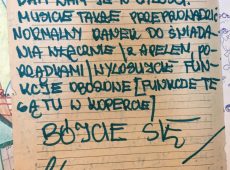 MUSICIE TAKŻE PRZEPROWADZIĆ
NORMALNY RANEK DO ŚNIADA-
NIA WŁĄCZNIE / Z APELEM, PO-
RZĄDKAMI / WYLOSUJCIE FUN-
KCJE OBOZOWE [FUNKCJE TE
SĄ TU W KOPERCIE]
BÓJCIE SIĘ